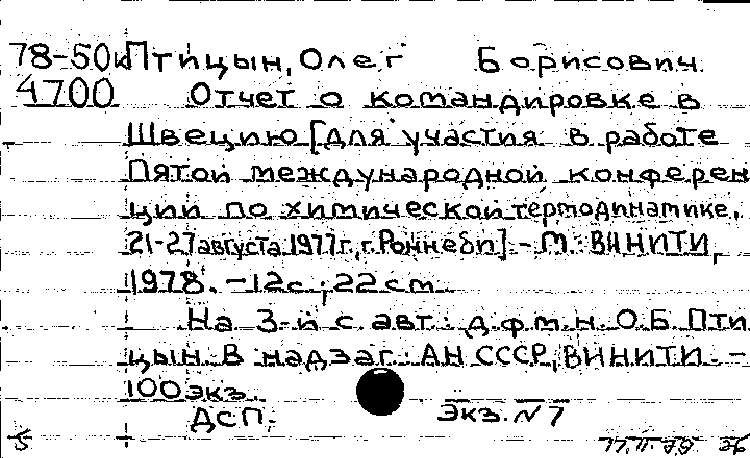 78-50к Птицын, Олег Борисович
4700 Отчет о командировке в
Швецию [для участия в работе
Пятой международной конферен
ции по химической термодинамике,
21-27 августа 1977 г., г. Роннеби] - М.: ВИНИТИ,
1978. - 12 с.; 22 см
На 3-й с. авт.: д.ф.м.н. О.Б. Пти
цын. В надзаг.: АН СССР, ВИНИТИ. -
100 экз.
ДСП.
Экз. N 7